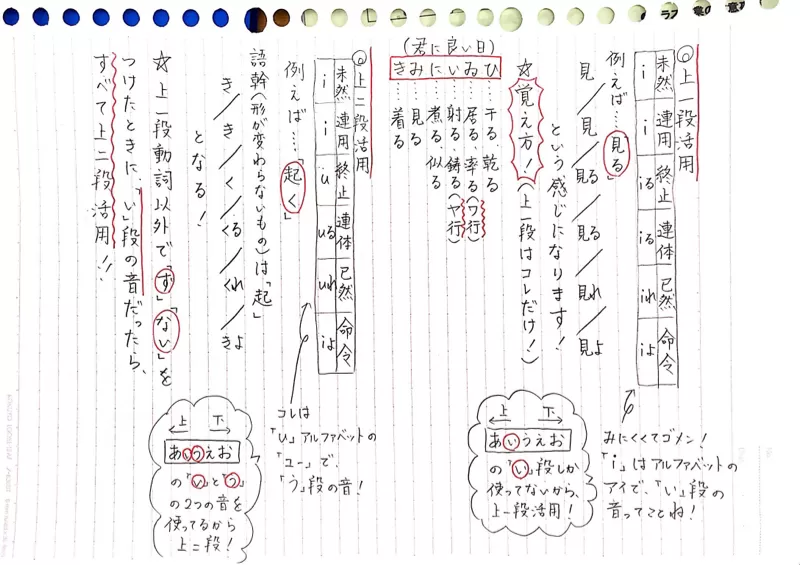 ◎上一段活用
未然 連用 終止 連体 已然 命令
i i iる iる iれ iよ
みにくくてゴメン！
「i」はアルファベットの
アイで、「い」段の
音ってことね！
例えば…「見る」
見／見／見る／見る／見れ／見よ
という感じになります！
☆覚え方！（上一段はコレだけ！）
（君に良い日）
ひゐいにみき
干る、乾る
居る、率る（ワ行）
射る、鋳る（ヤ行）
煮る、似る
見る
着る
上 下
あいうえお
の「い」段しか
使ってないから、
上一段活用！
◎上二段活用
未然 連用 終止 連体 已然 命令
i i u uる uれ iよ
コレは
「u」アルファベットの
「ユー」で、
「う」段の音！
例えば…「起く」
語幹（形が変わらないもの）は「起」
き／き／く／くる／くれ／きよ
となる！
☆上一段動詞以外で「ず」「ない」を
つけたときに、「い」段の音だったら、
すべて上二段活用！！
上 下
あいうえお
の「い」と「う」
の2つの音を
使ってるから
上二段！